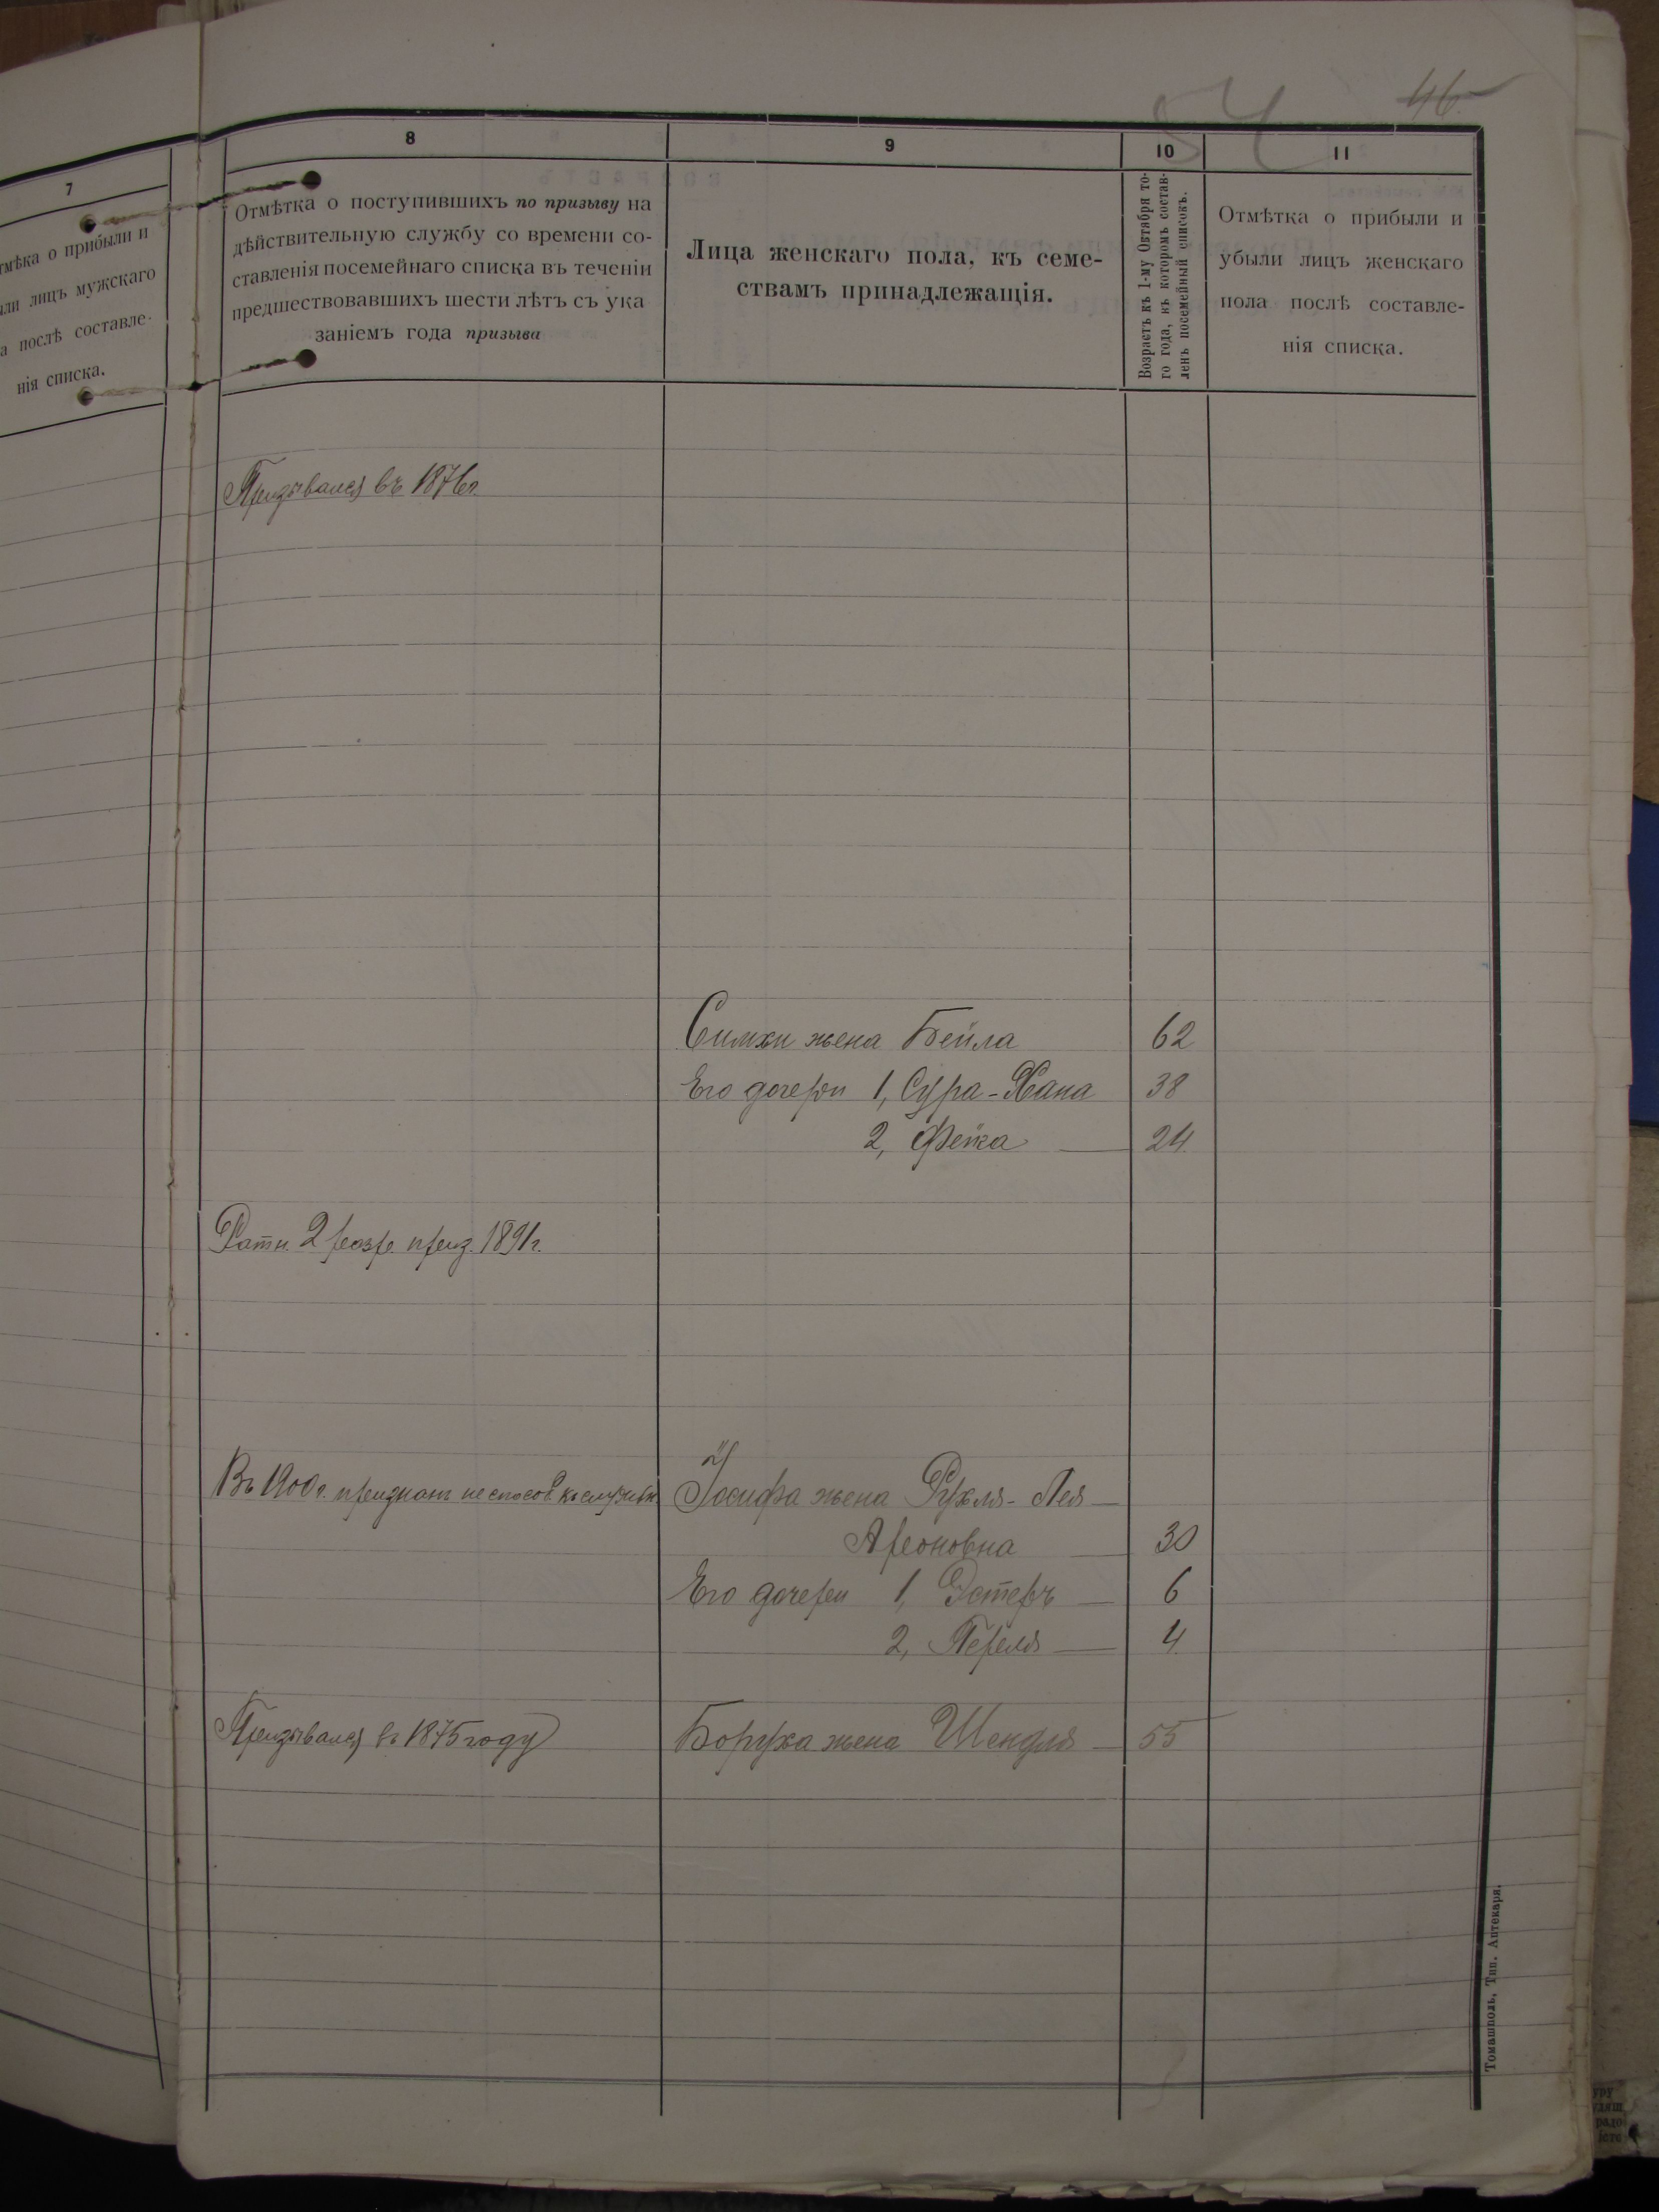 54 46
7
8
9
10
11
тмѣка о прибыли и
ыли лицъ мужскаго
а послѣ составле-
нія списка.
Отмѣтка о поступившихъ по призыву на
дѣйствительную службу со времени со-
ставленія посемейнаго списка въ теченіи
предшествовавшихъ шести лѣтъ съ ука
заніемъ года призыва
Лица женскаго пола, къ семе-
ствамъ принадлежащія.
Возрастъ къ 1-му Октября то-
го года, къ которомъ состав-
ленъ посемейный списокъ.
Отмѣтка о прибыли и
убыли лицъ женскаго
пола послѣ составле-
нія списка.
Призывался въ 1876г.
Симхи жена Бейла 62
Его дочери 1, Сура-Хана 38
2, Фейга 24
Ратн. 2 разр. приз. 1891г.
Въ 1900г. признанъ неспособ. къ службѣ. 2/ Іосифа жена Рухля-Лея
Ароновна 30
Его дочери 1, Эстеръ 6
2, Переля 4
Призывался въ 1875 году Боруха жена Шендля 55
Томашполь, Тип. Аптекаря.